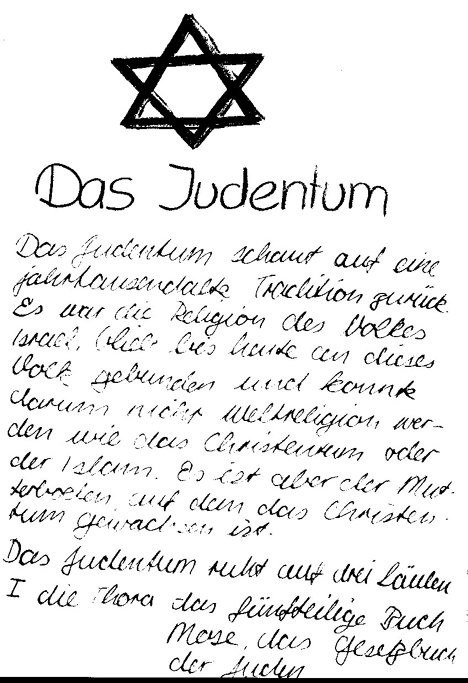 Das Judentum
Das Judentum schaut auf eine
jahrtausendalte Tradition zurück.
Es war die Religion des Volkes
Israel, blieb bis heute an dieses
Volk gebunden und konnte
darum nicht Weltreligion wer-
den wie das Christentum oder
der Islam. Es ist aber der Mut-
terboden, auf dem das Christen-
tum gewachsen ist.
Das Judentum ruht auf drei Säulen
I die Thora das fünfteilige Buch
Mose, das Gesetzbuch
der Juden